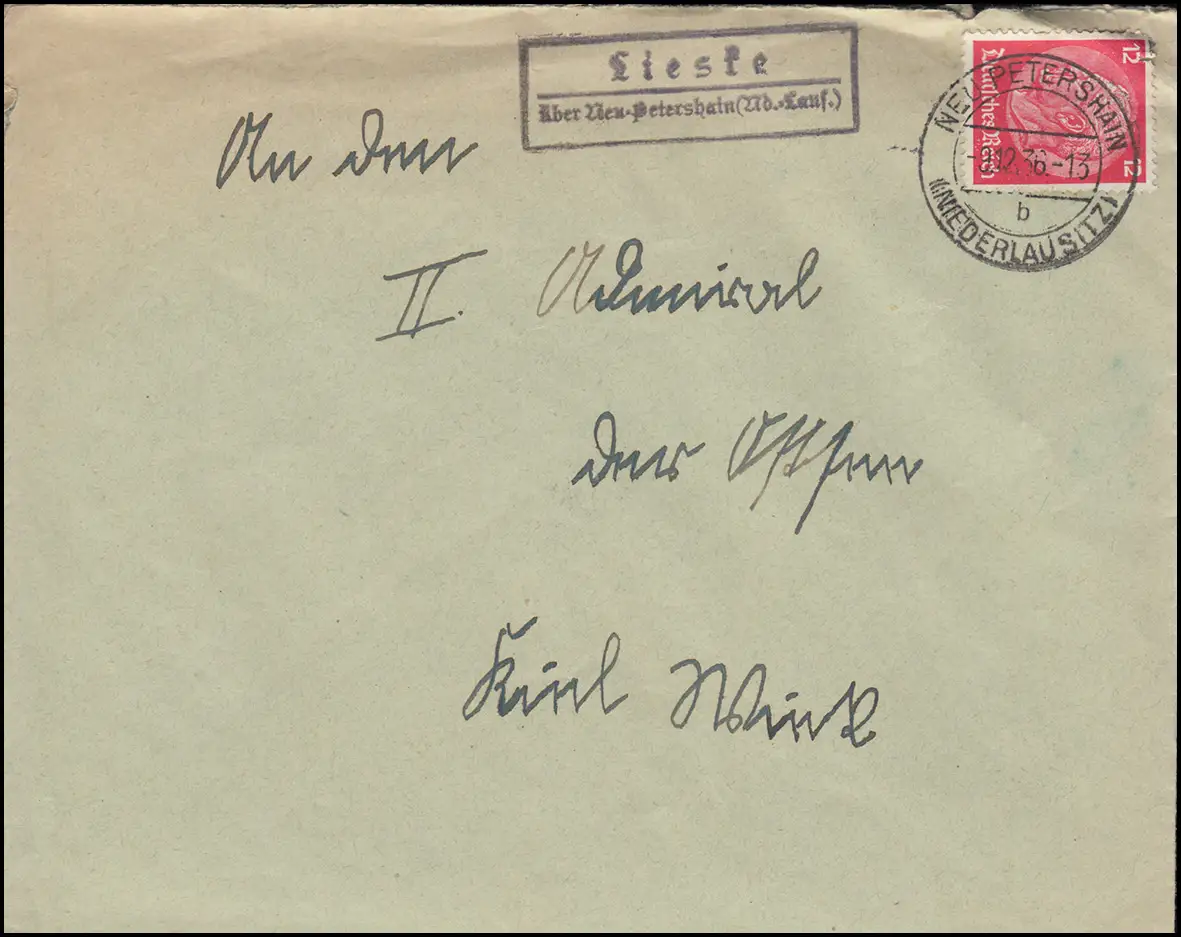 Lieske
über Neu-Petershain (Nd.-Laus.)
12
Deutsches Reich
12
NEU PETERSHAIN
12.36.-13
b
(NIEDERLAUSITZ)
An den
II. Admiral
der Ostsee
Kiel Wiek